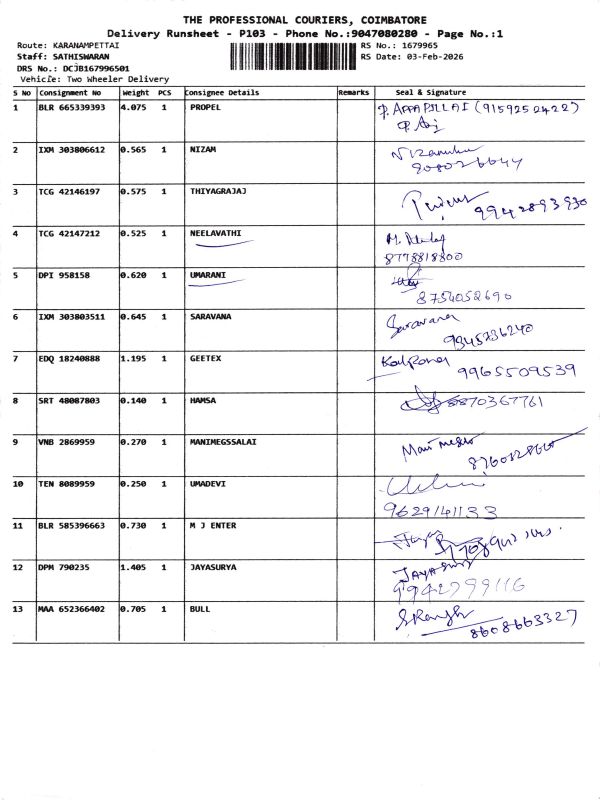 THE PROFESSIONAL COURIERS, COIMBATORE
Delivery Runsheet - P103 - Phone No.:9047080280 - Page No.:1
Route: KARANAMPETTAI RS No.: 1679965
Staff: SATHISWARAN RS Date: 03-Feb-2026
DRS No.: DCJB167996501
Vehicle: Two Wheeler Delivery
S No Consignment No Weight PCS Consignee Details Remarks Seal & Signature
1 BLR 665339393 4.075 1 PROPEL P. APPAPILLAI (9159252422)
2 IXM 303806612 0.565 1 NIZAM
9080266644
3 TCG 42146197 0.575 1 THIYAGRAJAJ
9942893930
4 TCG 42147212 0.525 1 NEELAVATHI
8778818800
5 DPI 958158 0.620 1 UMARANI
8754052690
6 IXM 303803511 0.645 1 SARAVANA Saravana
9345236240
7 EDQ 18240888 1.195 1 GEETEX Kalpana
9965509539
8 SRT 48087803 0.140 1 HAMSA 8870367761
9 VNB 2869959 0.270 1 MANIMEGSSALAI
10 TEN 8089959 0.250 1 UMADEVI
9629141133
11 BLR 585396663 0.730 1 M J ENTER
12 DPM 790235 1.405 1 JAYASURYA JAYASURY
9942799116
13 MAA 652366402 0.705 1 BULL
8608663327